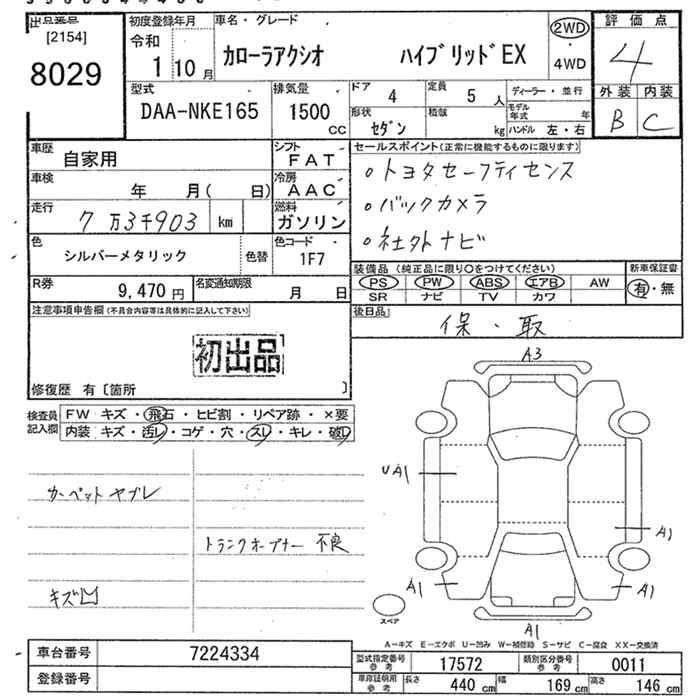 出品番号
[2154]
8029
初度登録年月
令和
1年10月
車名・グレード
カローラアクシオ ハイブリッドEX
2WD
・
4WD
評価点
4
外装 内装
B C
型式
DAA-NKE165
排気量
1500
CC
ドア 4
定員 5人
形状 セダン
積載 kg
ディーラー・並行
モデル年式 年
ハンドル 左・右
車歴 自家用
シフト FAT
車検 年 月( 日)
冷房 AAC
走行 7万3千903 km
燃料 ガソリン
色 シルバーメタリック
色替
色コード 1F7
R券 9,470円
名変通知期限 月 日
セールスポイント(正常に機能するものに限ります)
。トヨタセーフティセンス
。バックカメラ
。社外ナビ
装備品(純正品に限り○をつけてください)
PS PW ABS エアB AW
SR ナビ TV カワ
新車保証書
有・無
後日品
保・取
注意事項申告欄(不具合内容等は具体的に記入して下さい)
初出品
修復歴 有〔箇所 〕
検査員記入欄
FW キズ・飛石・ヒビ割・リペア跡・×要
内装 キズ・汚レ・コゲ・穴・スレ・キレ・破レ
カーペットヤブレ
トランクオープナー 不良
キズ凹
A3
UA1
A1
A1
A1
A1
スペア
A－キズ E－エクボ U－凹み W－補修跡 S－サビ C－腐食 XX－交換済
車台番号 7224334
登録番号
型式指定番号参考 17572
類別区分番号参考 0011
車庫証明用参考 長さ 440cm 幅 169cm 高さ 146cm